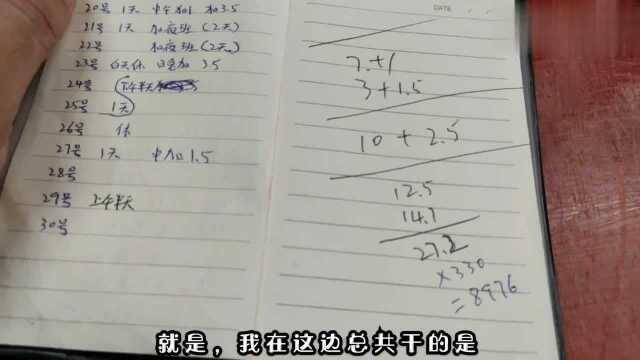 20号 1天 中午加1 加3.5
21号 1天 加夜班(2天)
22号 加夜班(2天)
23号 白天休 加3.5
24号 下午半天
25号 1天
26号 休
27号 1天 中加1.5
28号
29号 上午半天
30号
DATE
7.+1
3+1.5
10+2.5
12.5
14.7
27.2
×330
=8976
就是，我在这边总共干的是